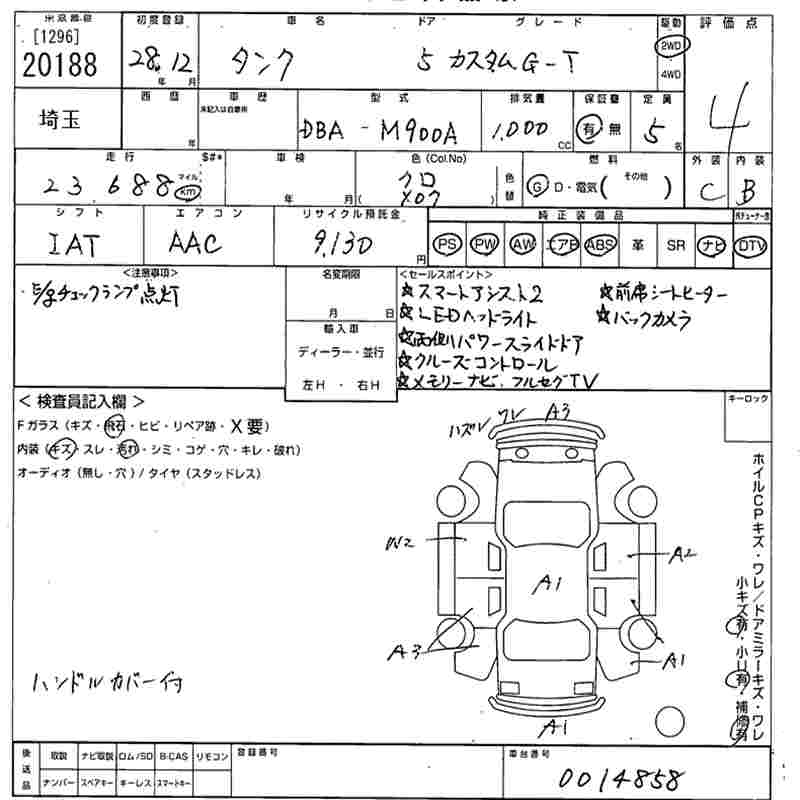 [1296]
20188
初度登録 28.12 年 月
車名 タンク
ドア 5
グレード カスタムG-T
駆動 2WD 4WD
評価点 4
埼玉
西暦 年
車歴 未記入は自家用
型式 DBA - M900A
排気量 1,000 CC
保証書 有 無
定員 5 名
走行 23,688 マイル km
$#*
車検 年 月
色(Col.No) クロ
( X07 )
色替
燃料 G D・電気 (その他 )
外装 C
内装 B
シフト IAT
エアコン AAC
リサイクル預託金 9,130 円
純正装備品
PS PW AW エアB ABS 革 SR ナビ DTV
<注意事項>
チェックランプ点灯
名変期限
月 日
輸入車
ディーラー・並行
左H ・ 右H
<セールスポイント>
☆スマートアシスト2 ☆前席シートヒーター
☆LEDヘッドライト ☆バックカメラ
☆両側パワースライドドア
☆クルーズコントロール
☆メモリーナビ・フルセグTV
キーロック
<検査員記入欄>
Fガラス(キズ・飛石・ヒビ・リペア跡・X要)
内装(キズ・スレ・汚れ・シミ・コゲ・穴・キレ・破れ)
オーディオ(無し・穴)/タイヤ(スタッドレス)
ハズレ ワレ A3
W2
A2
A1
A3
A1
A1
ハンドルカバー付
ホイルCPキズ・ワレ/ドアミラーキズ・ワレ
小キズ有・小U有・補修有
後送品
取説 ナビ取説 ロム/SD B-CAS リモコン
ナンバー スペアキー キーレス スマートキー
登録番号
車台番号
0014858